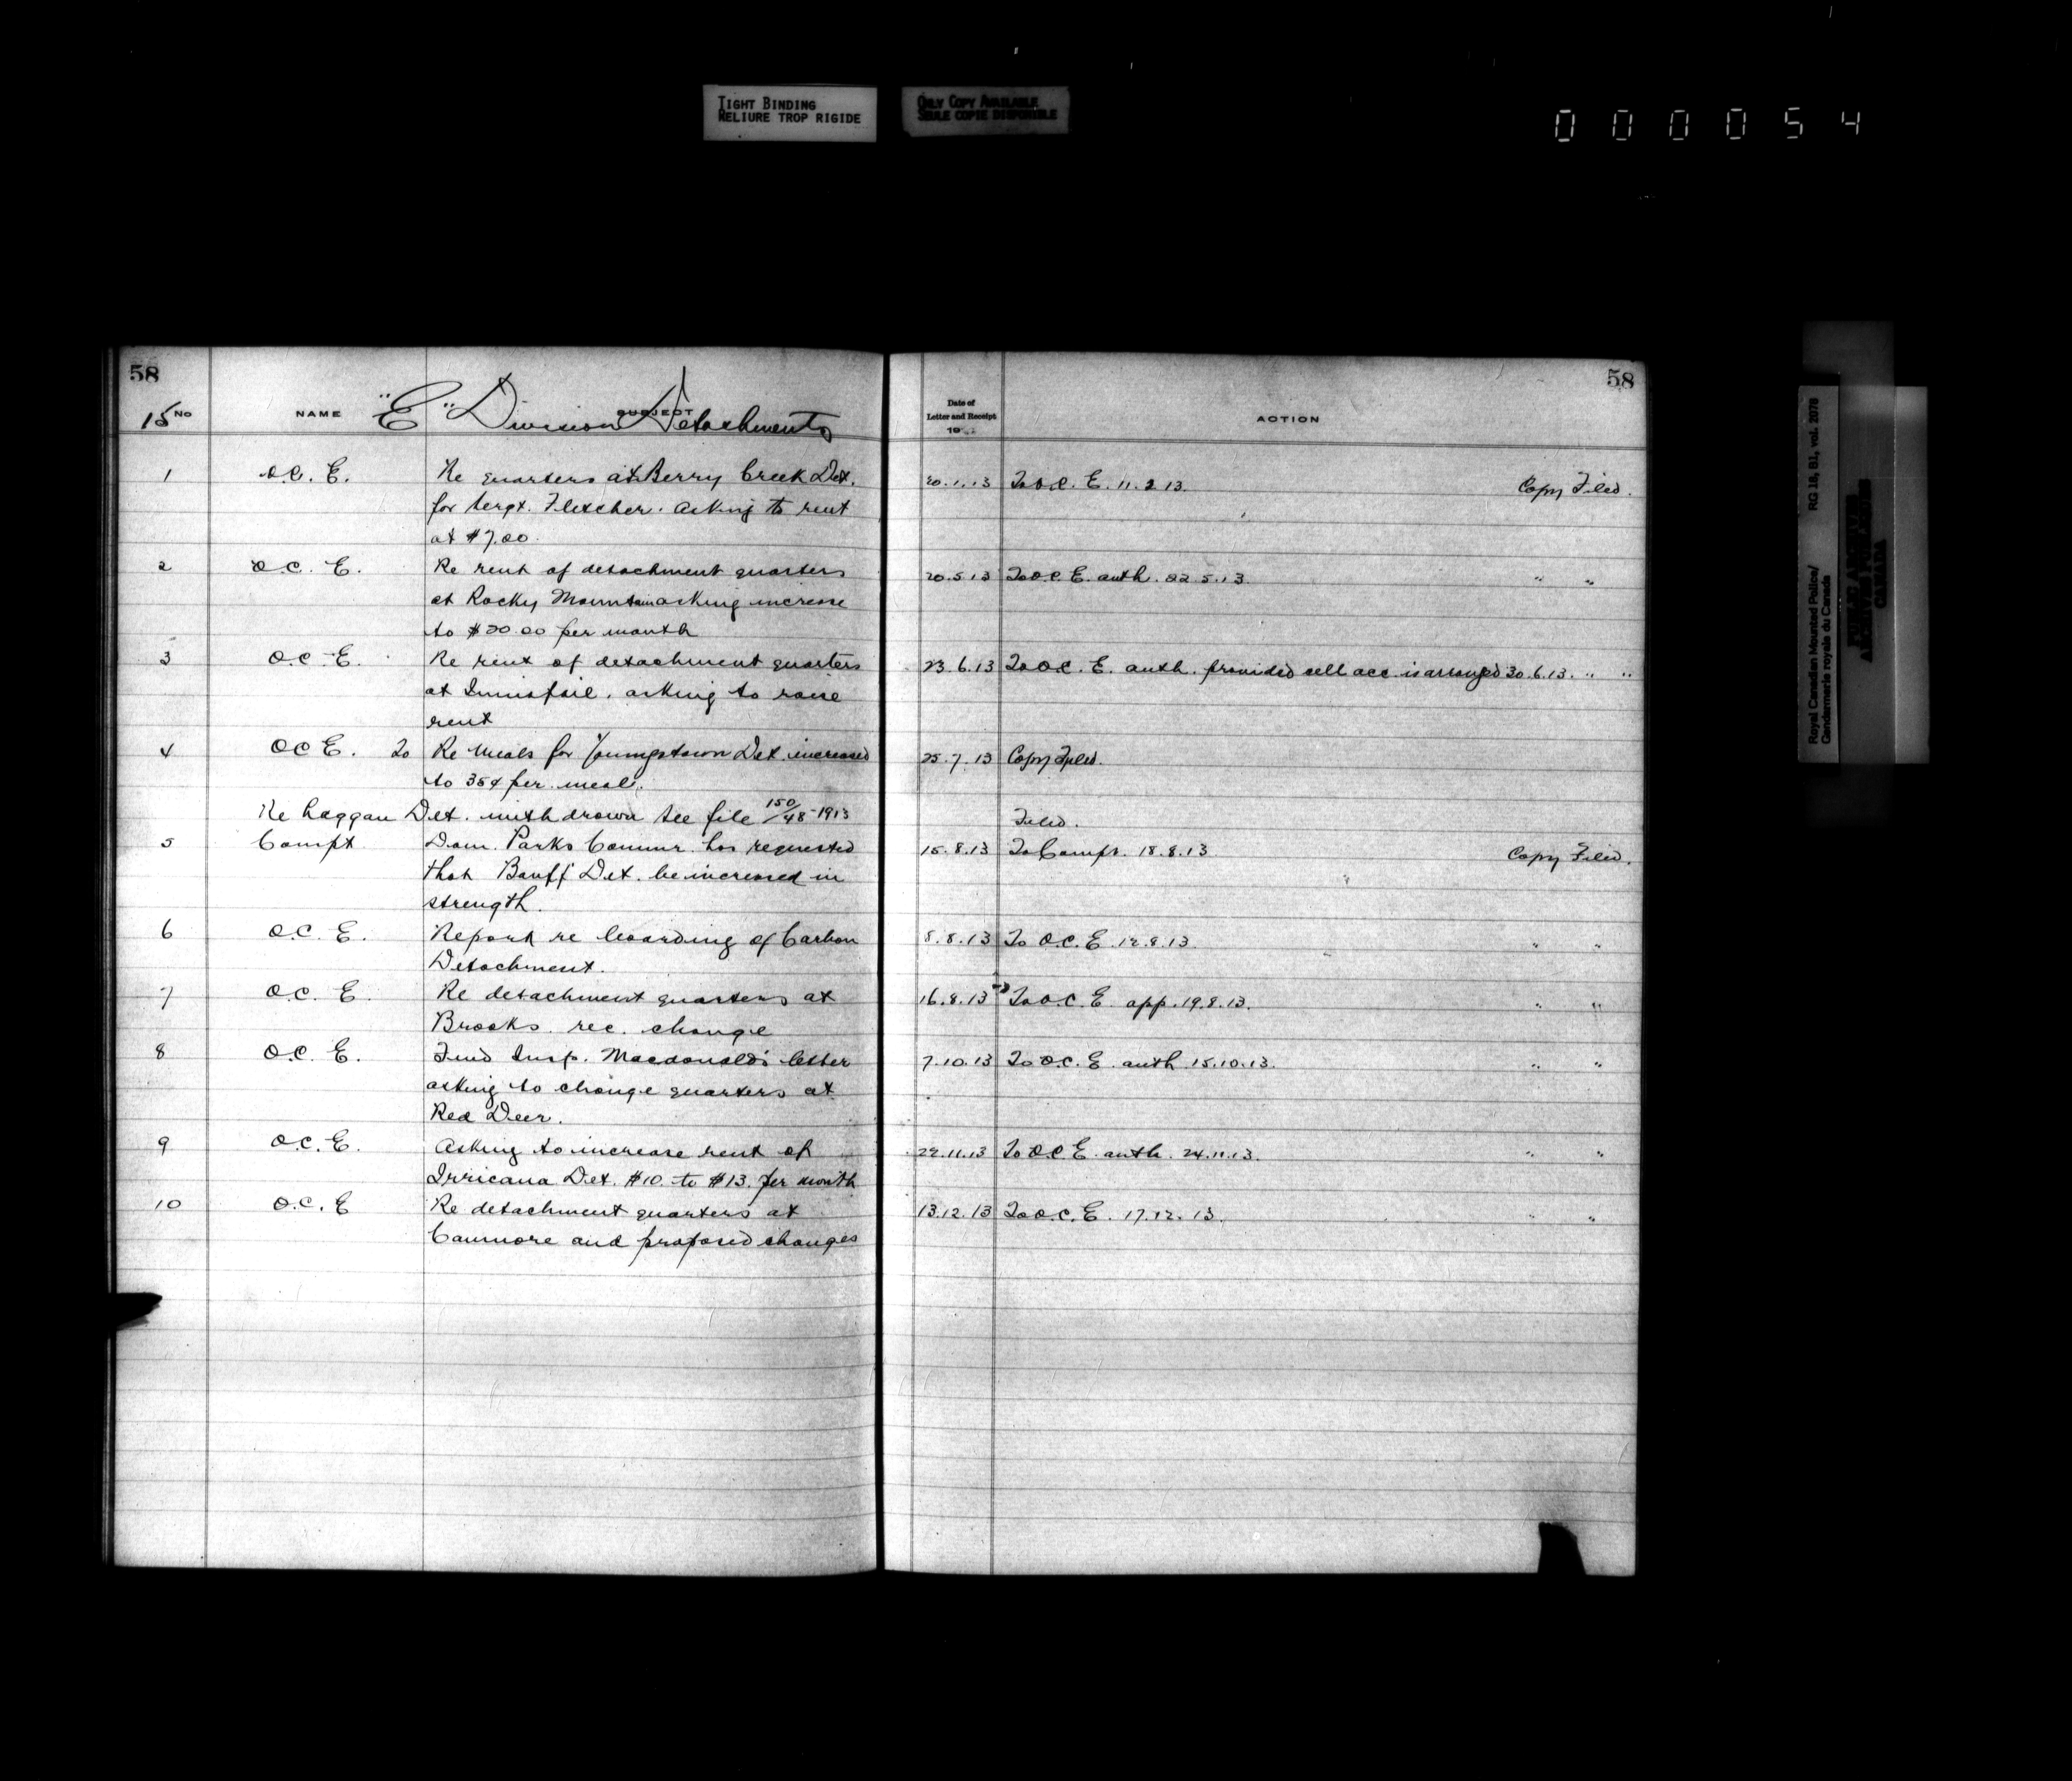 TIGHT BINDING
RELIURE TROP RIGIDE
ONLY COPY AVAILABLE
SEULE COPIE DISPONIBLE
000054
58
15 No NAME SUBJECT
"E" Division Detachments
1 O.C. E. Re quarters at Berry Creek Det.
for Sergt. Fletcher. Asking to rent
at $7.00.
2 O.C. E. Re rent of detachment quarters
at Rocky Mountain asking increase
to $20.00 per month
3 O.C. E. Re rent of detachment quarters
at Innisfail. asking to raise
rent
4 O C E. To Re Meals for Youngstown Det. increased
to 35¢ per meal.
Re Laggan Det. withdrawn see file 150/48-1913
5 Compt Dom. Parks Commr. has requested
that Banff Det. be increased in
strength.
6 O.C. E. Report re boarding of Carbon
Detachment.
7 O.C. E. Re detachment quarters at
Brooks. rec. change
8 O.C. E. Fwd Insp. Macdonald's letter
asking to change quarters at
Red Deer.
9 O.C. E. Asking to increase rent of
Irricana Det. $10. to $13. per month
10 O.C. E Re detachment quarters at
Canmore and proposed changes
58
Date of
Letter and Receipt
19
ACTION
20.1.13 To O.C. E. 11.2.13. Copy Filed.
20.5.13 To O.C. E. auth. 22.5.13. " "
23.6.13 To O.C. E. auth. provided cell acc. is arranged 30.6.13. " "
25.7.13 Copy Filed.
Filed.
15.8.13 To Compt. 18.8.13 Copy Filed.
8.8.13 To O.C. E. 12.8.13. " "
16.8.13 To O.C. E. app. 19.8.13. " "
7.10.13 To O.C. E. auth 15.10.13. " "
22.11.13 To O.C. E. auth. 24.11.13. " "
13.12.13 To O.C. E. 17.12.13. " "
Royal Canadian Mounted Police/
Gendarmerie royale du Canada
RG 18, B1, vol. 2078
PUBLIC ARCHIVES
ARCHIVES PUBLIQUES
CANADA